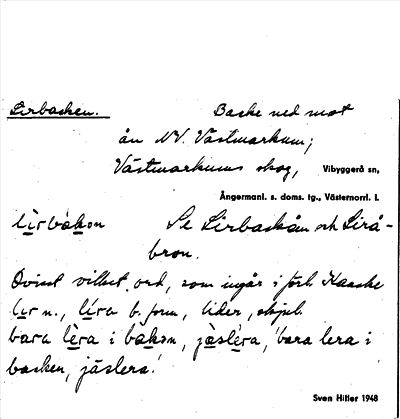 Lirbacken. Backe ned mot
ån NV. Västmarkum;
Västmarkums skog, Vibyggerå sn,
Ångermanl. s. doms. tg., Västernorrl. l.
li̱rbàkọn Se Lirbackån och Lirå-
bron.
Ovisst vilket ord, som ingår i förl. Kanske
li̱r n., li̱ra b. form, lider, skjul.
bara lè̱ra i bakọn, jä̱slè̱ra, 'bara lera i
backen, jäslera.'
Sven Hitler 1948